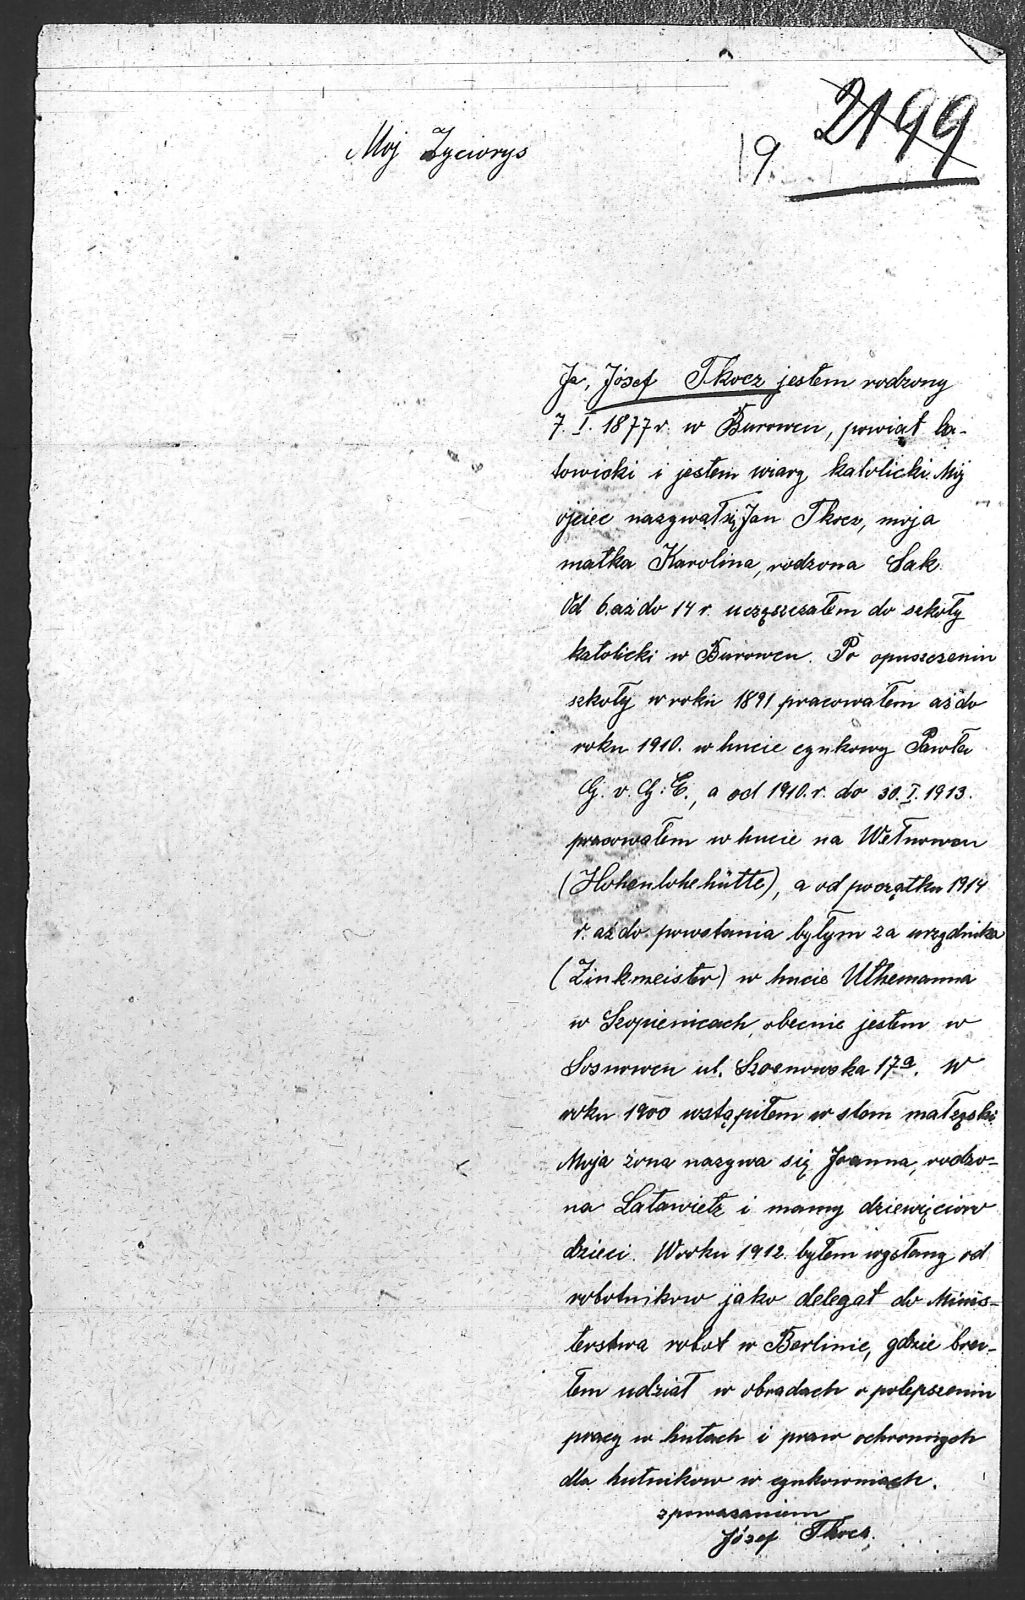 2199
19.
Moj Życiorys
Ja, Józef Tkocz jestem rodzony
7. I. 1877 r. w Burowcu, powiat ka-
towicki i jestem wiary katolicki. Mój
ojciec nazywał się Jan Tkocz, moja
matka Karolina, rodzona Sak.
Od 6. aż do 14 r. uczęszczałem do szkoły
katolicki w Burowcu. Po opuszczeniu
szkoły w roku 1891 pracowałem aż do
roku 1910. w hucie cynkowy Pawła
G. v. G. E., a od 1910. r. do 30. I. 1913.
pracowałem w hucie na Wełnowcu
(Hohenlohehütte), a od początku 1914
r. aż do powstania byłym za urzędnika
(Zinkmeister) w hucie Uthemanna
w Szopienicach, obecnie jestem w
Sosnowcu ul. Szosnowska 17a. W
roku 1900 wstąpiłem w stan małżeski.
Moja żona nazywa się Joanna, rodzo-
na Latawietz i mamy dziewięcioro
dzieci. W roku 1912. byłem wysłany od
robotnikow jako delegat do Minis-
terstwa robot w Berlinie, gdzie bra-
łem udział w obradach o polepszeniu
pracy w hutach i praw ochronnych
dla hutnikow w cynkowniach.
z powazaniem
Józef Tkocz.